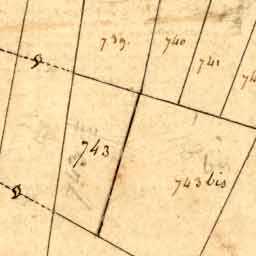 739.
740
741
743
743 bis